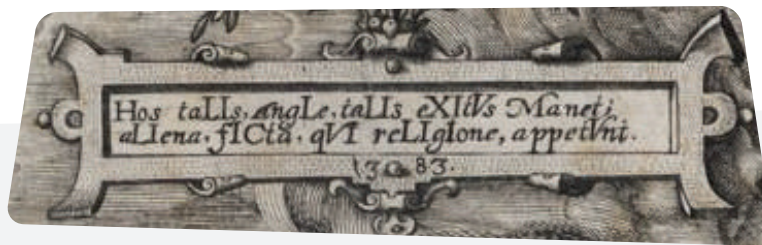 Hos taLIs, angLe, taLIs eXItVs Manet;
aLIena. fICta. qVI reLIgIone, appetVnt.
1383.